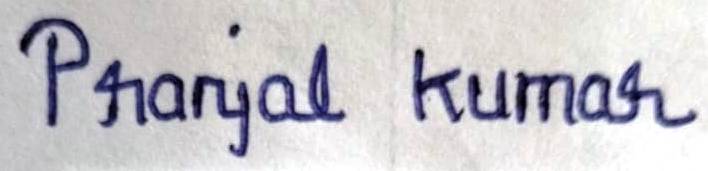 Pranjal kumar